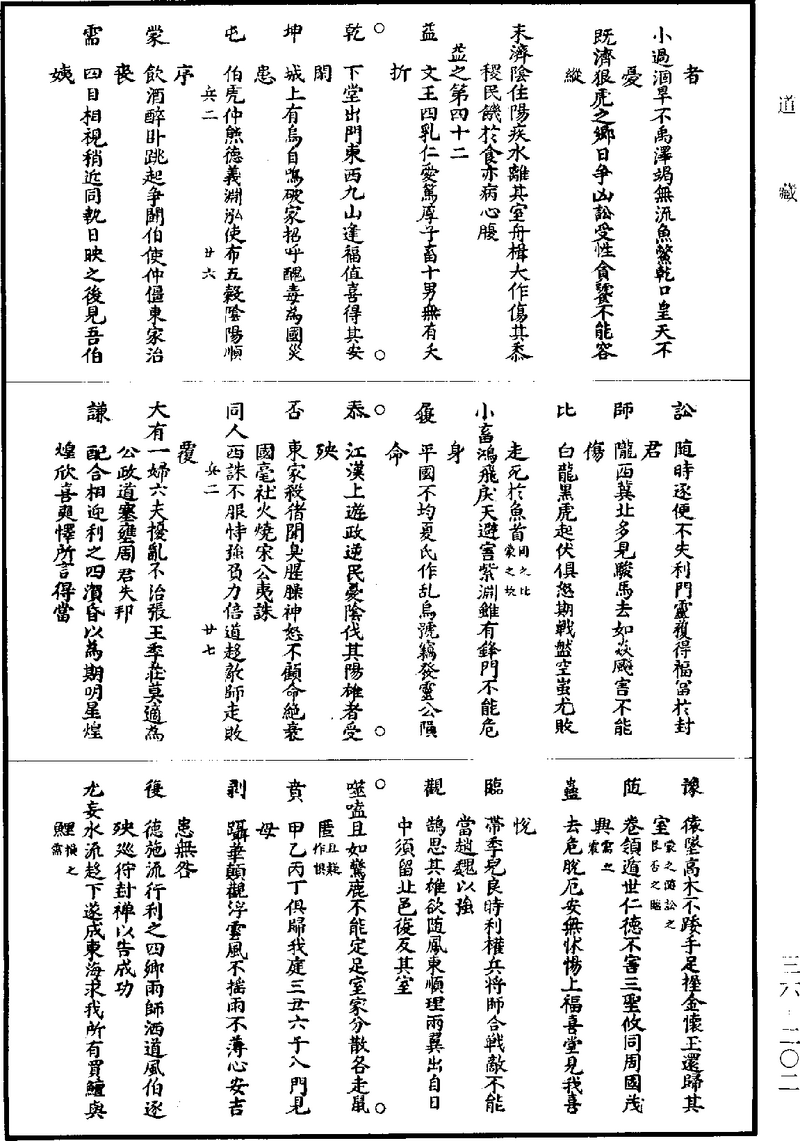 道藏
者
小過涸旱不禹澤竭無流魚鱉乾口皇天不
憂
既濟狼虎之鄉日争凶訟受性貪饕不能容
縱
未濟陰住陽疾水離其室舟楫大作傷其黍
稷民饑於食亦病心腹
益之第四十二
益 文王四乳仁愛篤厚子畜十男無有夭
折
乾 下堂出門東西九山逢福值喜得其安
閑
坤 城上有烏自鳴破家招呼醜毒為國災
患
屯 伯虎仲熊德義淵泓使布五穀陰陽順
兵二 廿六
序
蒙 飲酒醉卧跳起争鬭伯使仲僵東家治
喪
需 四目相視稍近同執日昳之後見吾伯
姨
訟 随時逐便不失利門靈獲得福富於封
君
師 隴西冀北多見駿馬去如焱飈害不能
傷
比 白龍黑虎起伏俱怒期戰盤空蚩尤敗
走死於魚首同之比蒙之坎
小畜鴻飛戾天避害紫淵雖有鋒門不能危
身
履 平國不均夏氏作乱烏號竊發靈公隕
命
泰 江漢上遊政逆民憂陰伐其陽雄者受
殃
否 東家殺猪聞臭腥臊神怒不顧命絶衰
國亳社火燒宋公夷誅
同人西誅不服恃強負力倍道趍敵師走敗
兵二 廿七
覆
大有一婦六夫擾亂不治張王季莊莫適為
公政道壅塞周君失邦
謙 配合相迎利之四濱昏以為期明星煌
煌欣喜奭懌所言得當
豫 猿墜高木不踒手足握金懷玉還歸其
室蒙之隨訟之艮否之臨
随 卷領遁世仁德不害三聖攸同周國茂
興需之震
蠱 去危脱厄安無怵惕上福喜堂見我喜
悅
臨 帶季兒良時利權兵將師合戰敵不能
當趙魏以強
觀 鵠思其雄欲随鳳東順理兩翼出自日
中須留北邑復反其室
噬嗑且如驚鹿不能定足室家分散各走鼠
匿且疑作俱
賁 甲乙丙丁俱歸我庭三丑六子八門見
母
剥 躡華顛觀浮雲風不摇雨不薄心安吉
患無咎
復 德施流行利之四鄉雨師洒道風伯逐
殃巡狩封禅以告成功
无妄水流趍下遂成東海求我所有買鱣與
鯉損之需
三六·二〇二